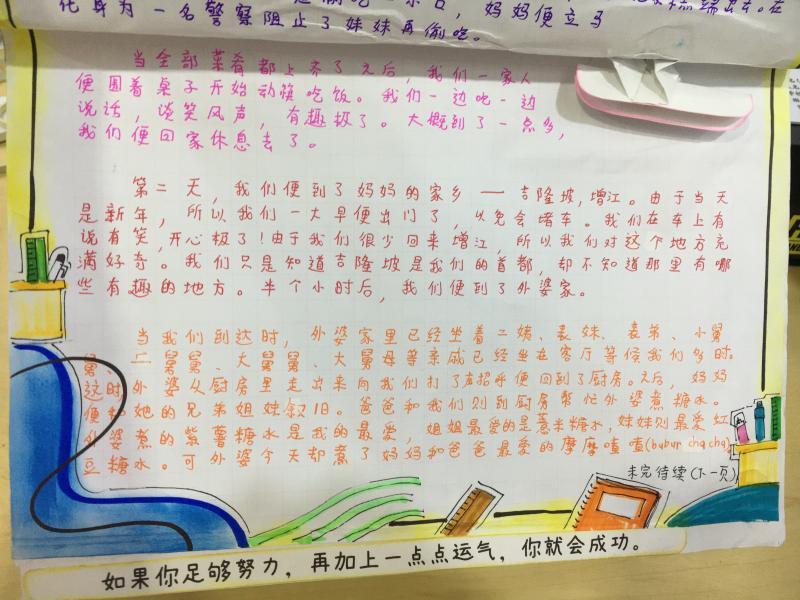 化身为一名警察阻止了妹妹再偷吃。
当全部菜肴都上齐了之后，我们一家人
便围着桌子开始动筷吃饭。我们一边吃一边
说话，谈笑风声，有趣极了。大概到了一点多，
我们便回家休息去了。
第二天，我们便到了妈妈的家乡——吉隆坡，增江。由于当天
是新年，所以我们一大早便出门了，以免会堵车。我们在车上有
说有笑，开心极了！由于我们很少回来增江，所以我们对这个地方充
满好奇。我们只是知道吉隆坡是我们的首都，却不知道那里有哪
些有趣的地方。半个小时后，我们便到了外婆家。
当我们到达时，外婆家里已经坐着二姨、表妹、表弟、小舅
舅、二舅舅、大舅舅、大舅母等亲戚已经坐在客厅等候我们多时。
这时外婆从厨房里走出来向我们打了声招呼便回到了厨房。之后，妈妈
便和她的兄弟姐妹叙旧。爸爸和我们则到厨房帮忙外婆煮糖水。
外婆煮的紫薯糖水是我的最爱，姐姐最爱的是薏米糖水，妹妹则最爱红
豆糖水。可外婆今天却煮了妈妈和爸爸最爱的摩摩喳喳(bubur chacha)
未完待续(下一页)
如果你足够努力，再加上一点点运气，你就会成功。